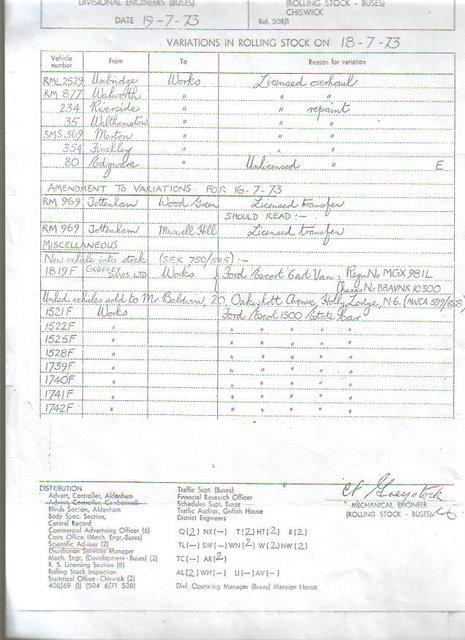 DIVISIONAL ENGINEERS (BUSES) (ROLLING STOCK - BUSES)
CHISWICK
DATE 19-7-73 Ref. 508/1
VARIATIONS IN ROLLING STOCK ON 18-7-73
Vehicle number From To Reason for variation
RML 2529 Uxbridge Works Licensed overhaul
RM 877 Walworth " " "
234 Riverside " " repaint
35 Walthamstow " " "
SMS 369 Merton " " "
354 Finchley " " "
80 Edgware " Unlicensed " E
AMENDMENT TO VARIATIONS FOR 16-7-73
RM 969 Tottenham Wood Green Licensed transfer
SHOULD READ :-
RM 969 Tottenham Muswell Hill Licensed transfer
MISCELLANEOUS
New vehicle into stock (SER 750/525) :-
1819F GODFREY DAVIS LTD Works Ford Escort Van : Regn No MGX 981L
Chassis No BBAVNR 10300
vehicles sold to Mr Baldwin, 20, Oakeshott Avenue, Holly Lodge, N.6.
1521F Works Ford 1300 Estate Car
1522F " " " " "
1525F " " " " "
1528F " " " " "
1739F " " " " "
1740F " " " " "
1741F " " " " "
1742F " " " " "
DISTRIBUTION
Advert. Controller, Aldenham
Advert. Controller, Camberwell
Blinds Section, Aldenham
Body Spec. Section,
Central Record
Commercial Advertising Officer (6)
Costs Office (Mech. Engr.-Buses)
Scientific Adviser (2)
Distribution Services Manager
Mech. Engr. (Development - Buses) (2)
R. S. Licensing Section (8)
Rolling Stock Inspection
Statistical Office - Chiswick (2)
408/69 (1) (504 6/71 508)
Traffic Supt. (Buses)
Financial Research Officer
Schedules Supt. Buses
Traffic Auditor, Griffith House
District Engineers
Q(2) NX(-) T(2) HT(2) R(2)
TL(-) SW(-) WN(2) W(2) HW(2)
TC(-) AR(2)
AL(2) WH(-) LI(-) AV(-)
Divl. Operating Manager (Buses) Mansion House
MECHANICAL ENGINEER
(ROLLING STOCK - BUSES)